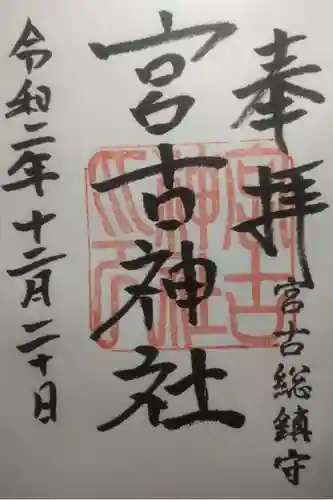 奉拝
宮古総鎮守
宮古神社
令和二年十二月二十日
宮古
神社
之印